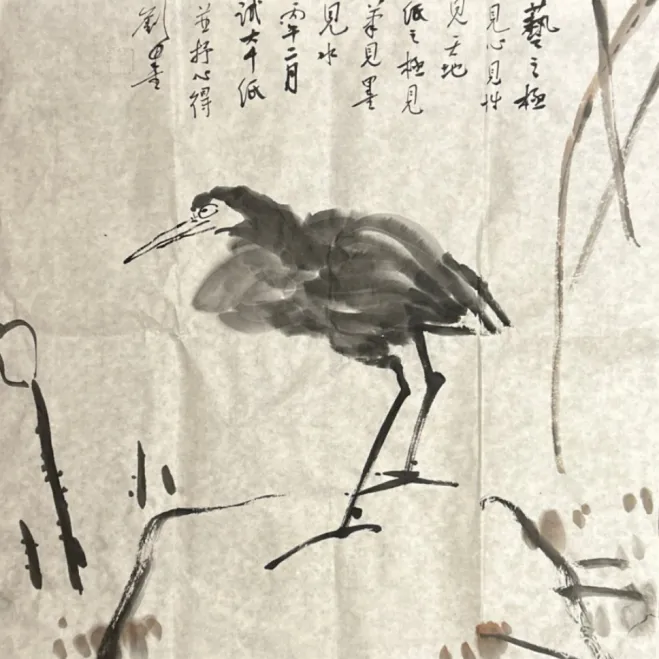 藝之極
見心見性
見天地
紙之極見
筆見墨
見水
丙午二月
試大千紙
並抒心得
劉墨